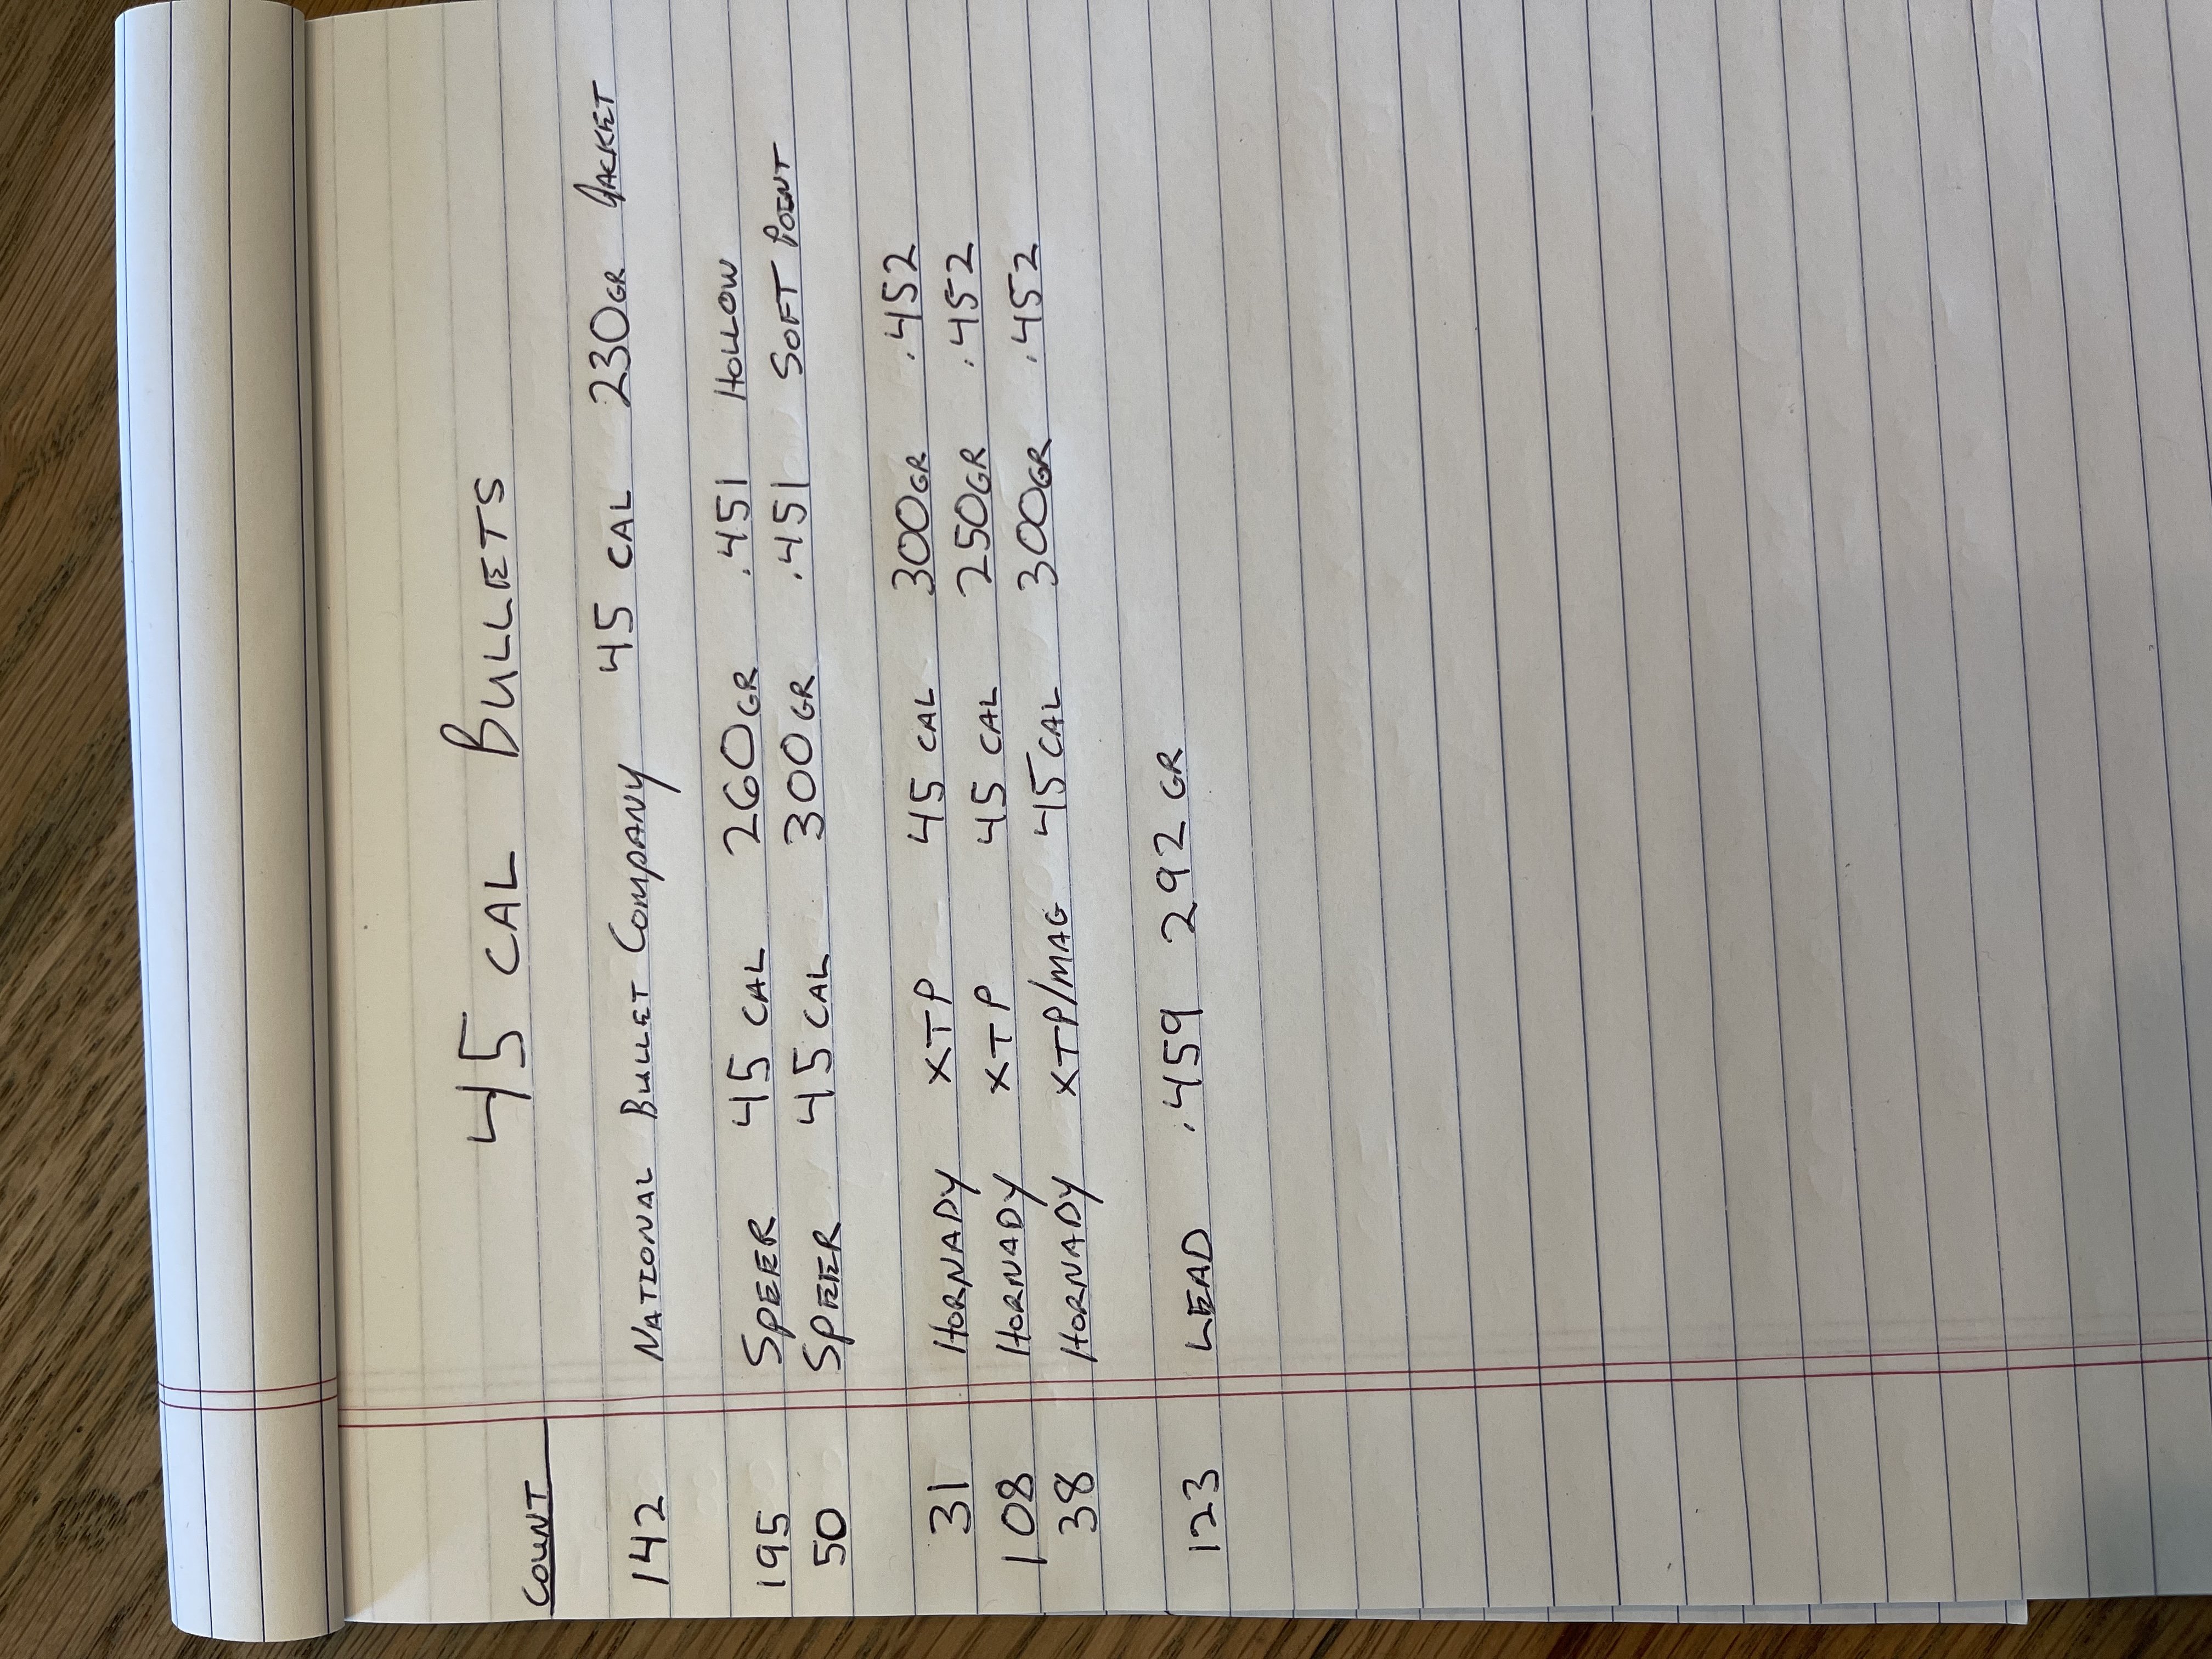 45 CAL BULLETS
COUNT
142 NATIONAL BULLET COMPANY 45 CAL 230GR JACKET
195 SPEER 45 CAL 260GR .451 HOLLOW
50 SPEER 45 CAL 300GR .451 SOFT POINT
31 HORNADY XTP 45 CAL 300GR .452
108 HORNADY XTP 45 CAL 250GR .452
38 HORNADY XTP/MAG 45 CAL 300GR .452
123 LEAD .459 292 GR